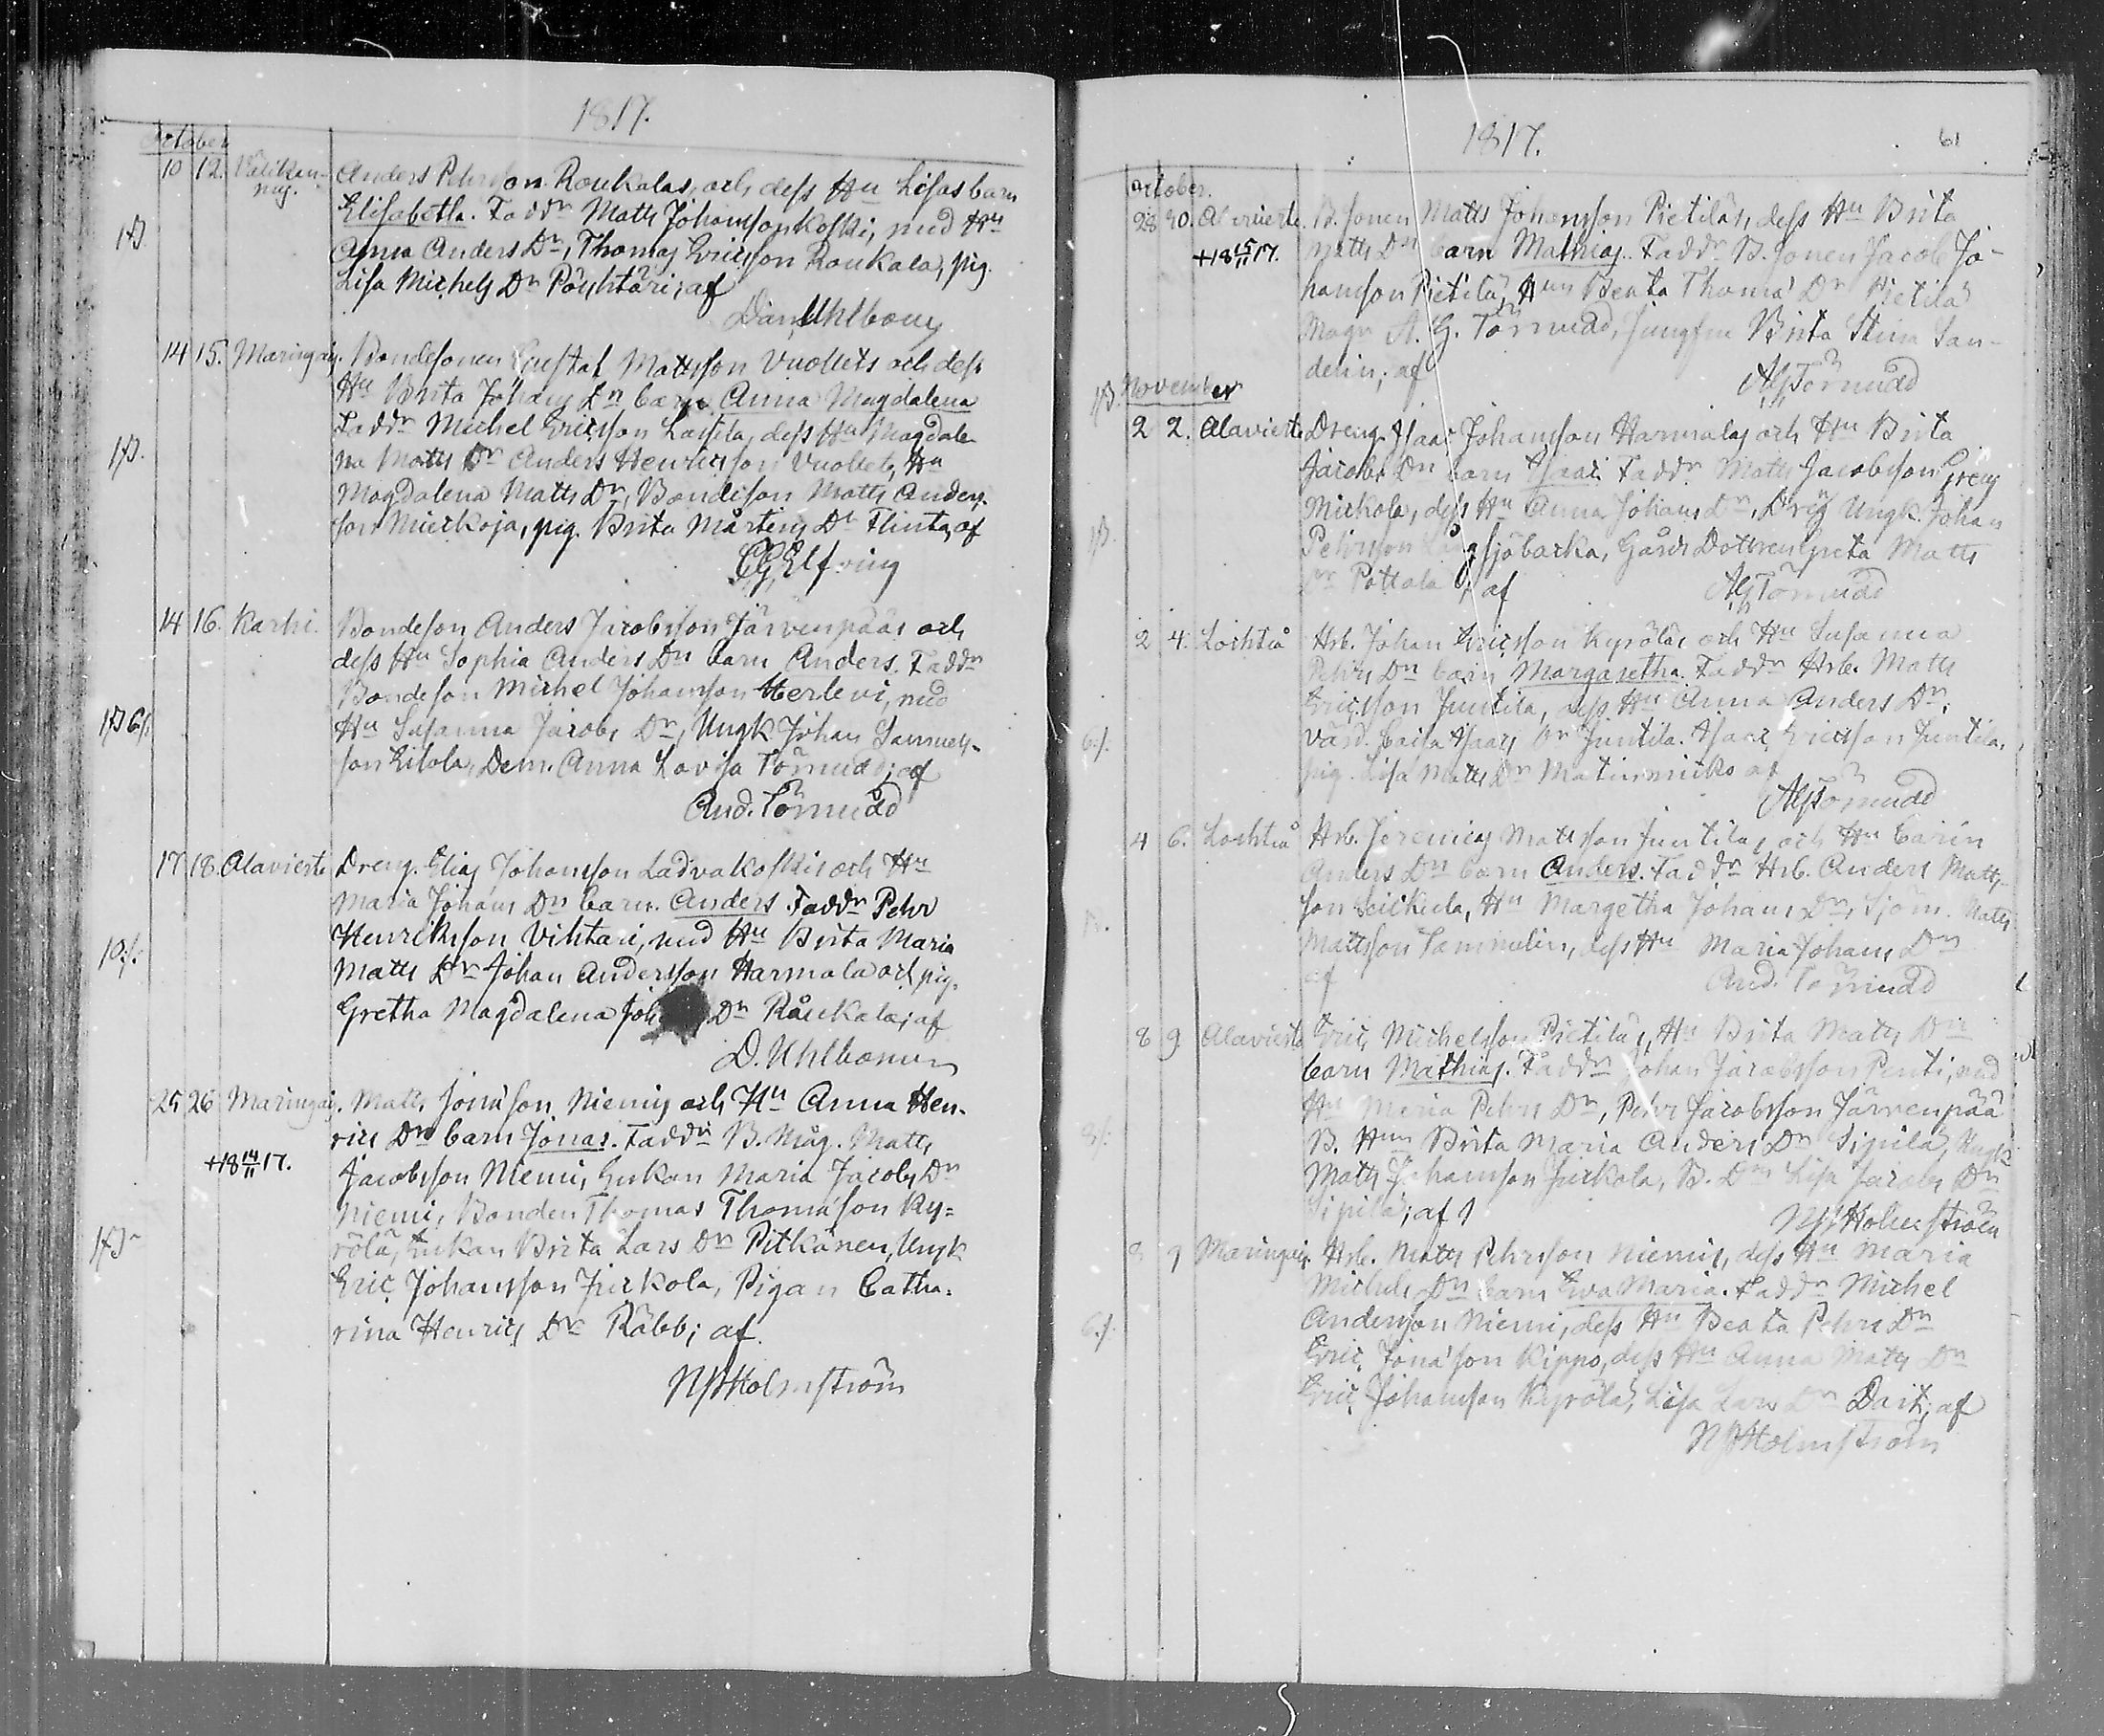 1817.
October
10 12. Välikan-
nug.
Anders Pehrsson Roukalas, och dess Hu Lisas barn
Elisabetha. Faddr Matts Johansson Koski, med Hu
Anna Anders Dr, Thomas Ericsson Roukala, pig.
Lisa Michels Dr Pöyhtäri; af
Dan Uhlbom
14 15. Maringais. Bondesonen Gustaf Mattsson Vuollets och dess
Hu Brita Johans Dr barn Anna Magdalena
Faddr Michel Ericsson Lassila, dess Hu Magdale-
na Matts Dr Anders Henricsson Vuollet, Hu
Magdalena Matts Dr, Bondeson Matts Anders-
son Mieskoja, pig. Brita Mårtens Dr Flinta, af
CG Elfving
14 16. Karhi. Bondeson Anders Jacobsson Järvenpääs och
dess Hu Sophia Anders Dr barn Anders. Faddr
Bondeson Michel Johansson Herlevi, med
Hu Susanna Jacobs Dr, Ungk. Johan Samuels-
son Lilola, Dem. Anna Lovisa Törnudd; af
And. Törnudd
17 18. Alavieska Dreng. Elias Johansson Ladvakoskis och Hu
Maria Johans Dr barn. Anders. Faddr Pehr
Henriksson Vihtari, med Hu Brita Maria
Matts Dr Johan Andersson Harmala och pig.
Gretha Magdalena Dr Råukala; af
D. Uhlbom
25 26 Maringais. Matts Jonæson Niemis och Hu Anna Hen-
rics Dr barn Jonas. Faddr B. Måg. Matts
+18 14/11 17.
Jacobsson Niemi, Enkan Maria Jacobs Dr
Niemi, Bonden Thomas Thomæson Ky-
rölä, Enkan Brita Lars Dr Pitkänen, Ungk
Eric Johansson Jurkola, Pigan Catha-
rina Henrics Dr Räbb; af
NJ Holmström
1817.
61
October.
28 30. Alavieska B. Sonen Matts Johansson Pietiläs, dess Hu Brita
+18 15/11 17.
Matts Dr barn Mathias. Faddr B. Sonen Jacob Jo-
hansson Pietilä, Hun Beata Thomæ Dr Pietilä
Magr A. G. Törnudd, Jungfru Brita Stina San-
delin; af
AG Törnudd
November
2 2. Alavieska Dreng. Isaac Johansson Harmalas och Hu Brita
Jacobs Dr barn Isaac. Faddr Matts Jacobsson
Mickola, dess Hu Anna Johans Dr, Ungk. Johan
Pehrsson Gårds Dottren Greta Matts
Dr Pottala; af
AG Törnudd
2 4. Lochteå Hrb. Johan Ericsson Kyröläs och Hu Susanna
Pehrs Dr barn Margaretha. Faddr Hrb. Matts
Ericsson Juntila, dess Hu Anna Anders Dr,
Caisa Isaacs Dr Juntila. Isaac Ericsson Juntila,
pig. Lisa Matts Dr Matinmicko af
AG Törnudd
4 6. Lochteå Hrb. Jeremias Mattsson Juntilas och Hu Carin
Anders Dr barn Anders. Faddr Hrb. Anders Matts-
son Hu Margetha Johans Dr, Sjöm. Matts
Mattsson Tammelin, dess Hu Maria Johans Dr
af
And. Törnudd
8 9 Alavieska Eric Michelsson Pietiläs, Hu Brita Matts Dr
barn Mathias. Faddr Johan Jacobsson Penti, med
Hu Maria Pehrs Dr, Pehr Jacobsson Järvenpää
B. Hun Brita Maria Anders Dr Sipilä, Ungk
Matts Johansson Jurkola, B. Dr Lisa Jacobs Dr
Sipilä; af
NJ Holmström
8 9 Maringais Hrb. Matts Pehrsson Niemis, dess Hu Maria
Michels Dr barn Eva Maria. Faddr Michel
Andersson Niemi, dess Hu Beata Pehrs Dr
Eric Jonæson Kippo, dess Hu Anna Matts Dr
Eric Johansson Kyrölä, Lisa Lars Dr Dait; af
NJ Holmström